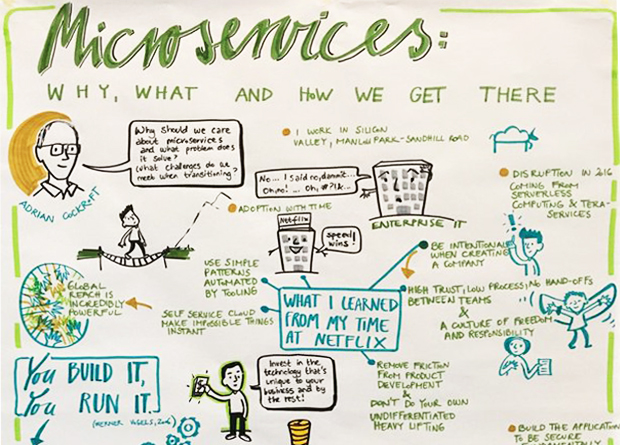 Microservices:
WHY, WHAT AND HOW WE GET THERE
ADRIAN COCKROFT
Why should we care
about microservices
and what problem does
it solve?
What challenges do we
meet when transitioning?
I WORK IN SILICON
VALLEY, MANLOW PARK-SANDHILL ROAD
No... I said no, dammit...
Oh, no! ... Oh, #?!&...
ENTERPRISE IT
DISRUPTION IN 2016
COMING FROM
SERVERLESS
COMPUTING & TERA-
SERVICES
ADOPTION WITH TIME
Netflix
speed
wins!
GLOBAL
REACH IS
INCREDIBLY
POWERFUL
USE SIMPLE
PATTERNS
AUTOMATED
BY TOOLING
SELF SERVICE CLOUD
MAKE IMPOSSIBLE THINGS
INSTANT
WHAT I LEARNED
FROM MY TIME
AT NETFLIX
BE INTENTIONAL
WHEN CREATING
A COMPANY
HIGH TRUST, LOW PROCESS, NO HAND-OFFS
BETWEEN TEAMS
&
A CULTURE OF FREEDOM
AND RESPONSIBILITY
REMOVE FRICTION
FROM PRODUCT
DEVELOPMENT
&
DON'T DO YOUR OWN
UNDIFFERENTIATED
HEAVY LIFTING
You BUILD IT,
You RUN IT.
(WERNER VOGELS, 2006)
Invest in the
technology that's
unique to your
business and buy
the rest!
BUILD THE APPLICATION
TO BE SECURE